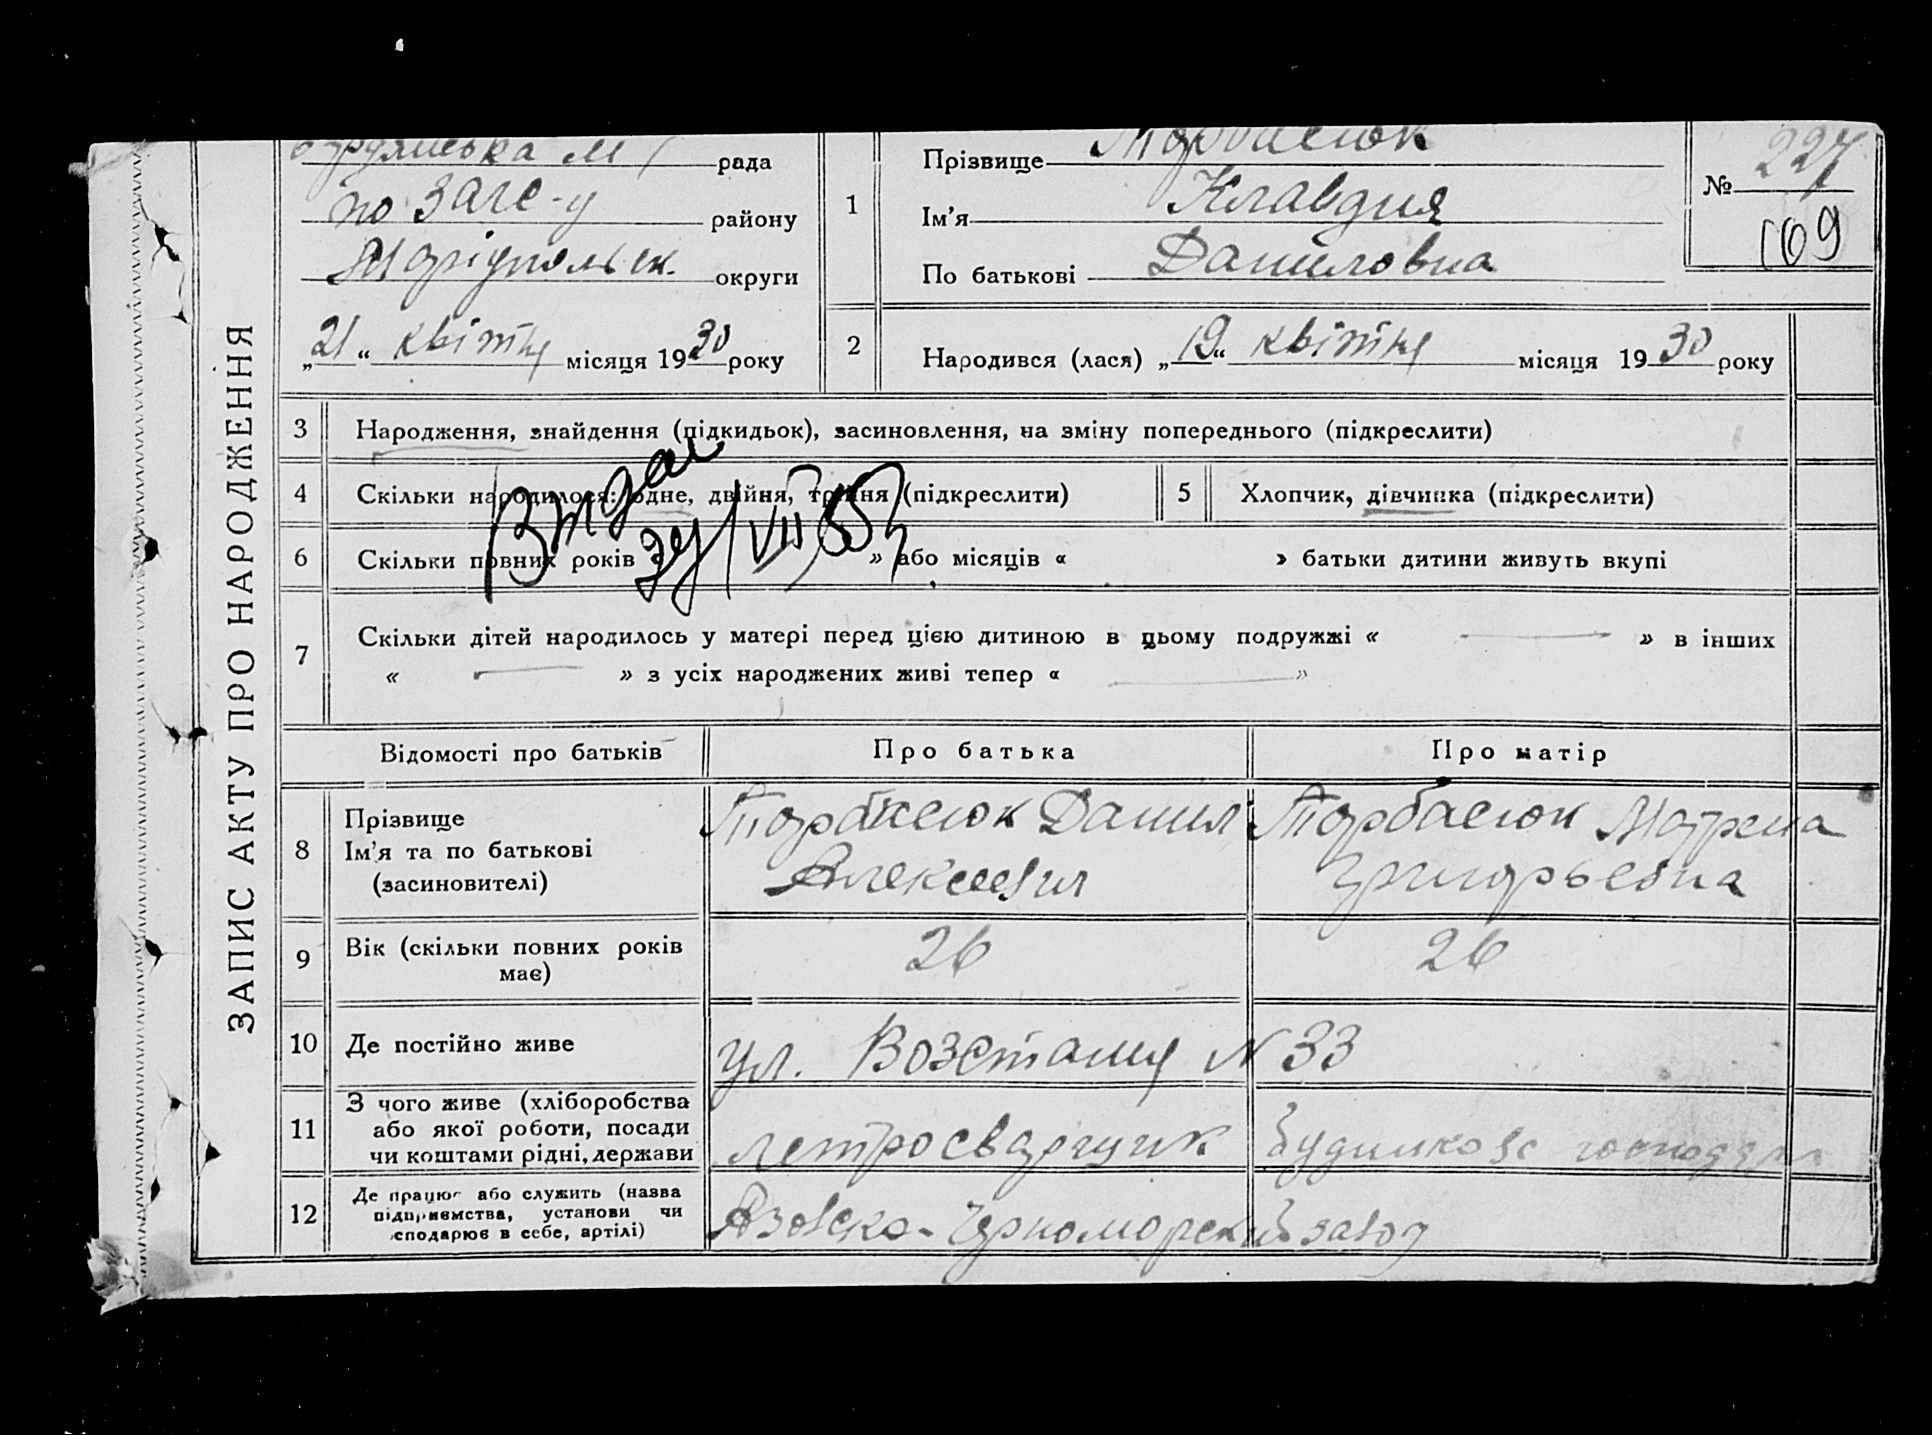 ЗАПИС АКТУ ПРО НАРОДЖЕННЯ
рада
по ЗАГС-у району
Маріупольськ. округи
„21“ квітня місяця 1930 року
1
Прізвище
Ім’я Клавдия
По батькові Даниловна
№ 227
109
2
Народився (лася) „19“ квітня місяця 1930 року
3 Народження, знайдення (підкидьок), засиновлення, на зміну попереднього (підкреслити)
4 Скільки народилося: одне, двійня, трійня (підкреслити)
5 Хлопчик, дівчинка (підкреслити)
6 Скільки повних років » або місяців « » батьки дитини живуть вкупі
7 Скільки дітей народилось у матері перед цією дитиною в цьому подружжі « — » в інших
« — » з усіх народжених живі тепер « — »
Відомості про батьків
Про батька
Про матір
8 Прізвище
Ім’я та по батькові
(засиновителі)
Данил
Алексеевич
Матрена
Григорьевна
9 Вік (скільки повних років має)
26
26
10 Де постійно живе
ул. Возстания N 33
11 З чого живе (хліборобства
або якої роботи, посади
чи коштами рідні, держави
сварщик
господар
12 Де працює або служить (назва
підприємства, установи чи
сподарює в себе, артілі)
Азовско-Черноморский завод